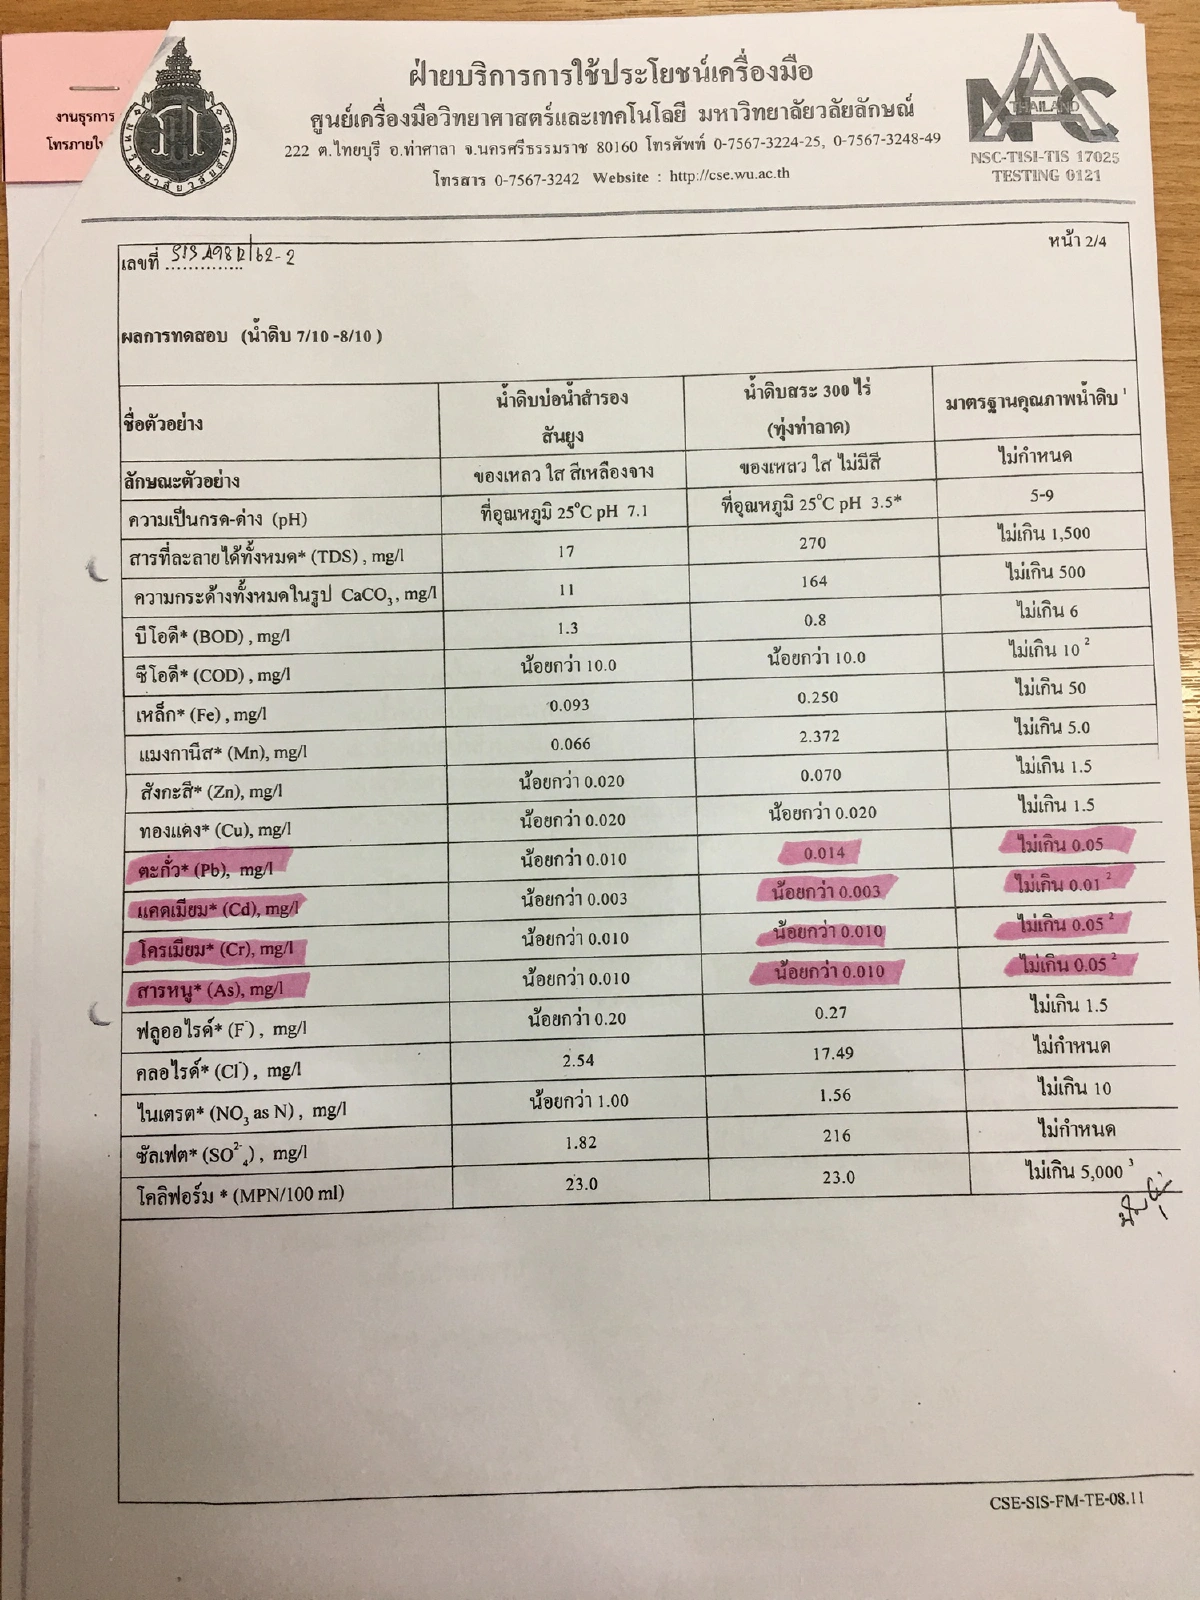 งานธุรการ
โทรภายใน
มหาวิทยาลัยวลัยลักษณ์
ฝ่ายบริการการใช้ประโยชน์เครื่องมือ
ศูนย์เครื่องมือวิทยาศาสตร์และเทคโนโลยี มหาวิทยาลัยวลัยลักษณ์
222 ต.ไทยบุรี อ.ท่าศาลา จ.นครศรีธรรมราช 80160 โทรศัพท์ 0-7567-3224-25, 0-7567-3248-49
โทรสาร 0-7567-3242 Website : http://cse.wu.ac.th
THAILAND
NSC-TISI-TIS 17025
TESTING 0121
หน้า 2/4
เลขที่
ผลการทดสอบ (น้ำดิบ 7/10 -8/10 )
ชื่อตัวอย่าง น้ำดิบบ่อน้ำสำรอง สันยูง น้ำดิบสระ 300 ไร่ (ทุ่งท่าลาด) มาตรฐานคุณภาพน้ำดิบ ¹
ลักษณะตัวอย่าง ของเหลว ใส สีเหลืองจาง ของเหลว ใส ไม่มีสี ไม่กำหนด
ความเป็นกรด-ด่าง (pH) ที่อุณหภูมิ 25°C pH 7.1 ที่อุณหภูมิ 25°C pH 3.5* 5-9
สารที่ละลายได้ทั้งหมด* (TDS) , mg/l 17 270 ไม่เกิน 1,500
ความกระด้างทั้งหมดในรูป CaCO₃ , mg/l 11 164 ไม่เกิน 500
บีโอดี* (BOD) , mg/l 1.3 0.8 ไม่เกิน 6
ซีโอดี* (COD) , mg/l น้อยกว่า 10.0 น้อยกว่า 10.0 ไม่เกิน 10 ²
เหล็ก* (Fe) , mg/l 0.093 0.250 ไม่เกิน 50
แมงกานีส* (Mn), mg/l 0.066 2.372 ไม่เกิน 5.0
สังกะสี* (Zn), mg/l น้อยกว่า 0.020 0.070 ไม่เกิน 1.5
ทองแดง* (Cu), mg/l น้อยกว่า 0.020 น้อยกว่า 0.020 ไม่เกิน 1.5
ตะกั่ว* (Pb), mg/l น้อยกว่า 0.010 0.014 ไม่เกิน 0.05
แคดเมียม* (Cd), mg/l น้อยกว่า 0.003 น้อยกว่า 0.003 ไม่เกิน 0.01 ²
โครเมียม* (Cr), mg/l น้อยกว่า 0.010 น้อยกว่า 0.010 ไม่เกิน 0.05 ²
สารหนู* (As), mg/l น้อยกว่า 0.010 น้อยกว่า 0.010 ไม่เกิน 0.05 ²
ฟลูออไรด์* (F⁻) , mg/l น้อยกว่า 0.20 0.27 ไม่เกิน 1.5
คลอไรด์* (Cl⁻) , mg/l 2.54 17.49 ไม่กำหนด
ไนเตรต* (NO₃ as N) , mg/l น้อยกว่า 1.00 1.56 ไม่เกิน 10
ซัลเฟต* (SO²⁻₄) , mg/l 1.82 216 ไม่กำหนด
โคลิฟอร์ม * (MPN/100 ml) 23.0 23.0 ไม่เกิน 5,000 ³
CSE-SIS-FM-TE-08.11